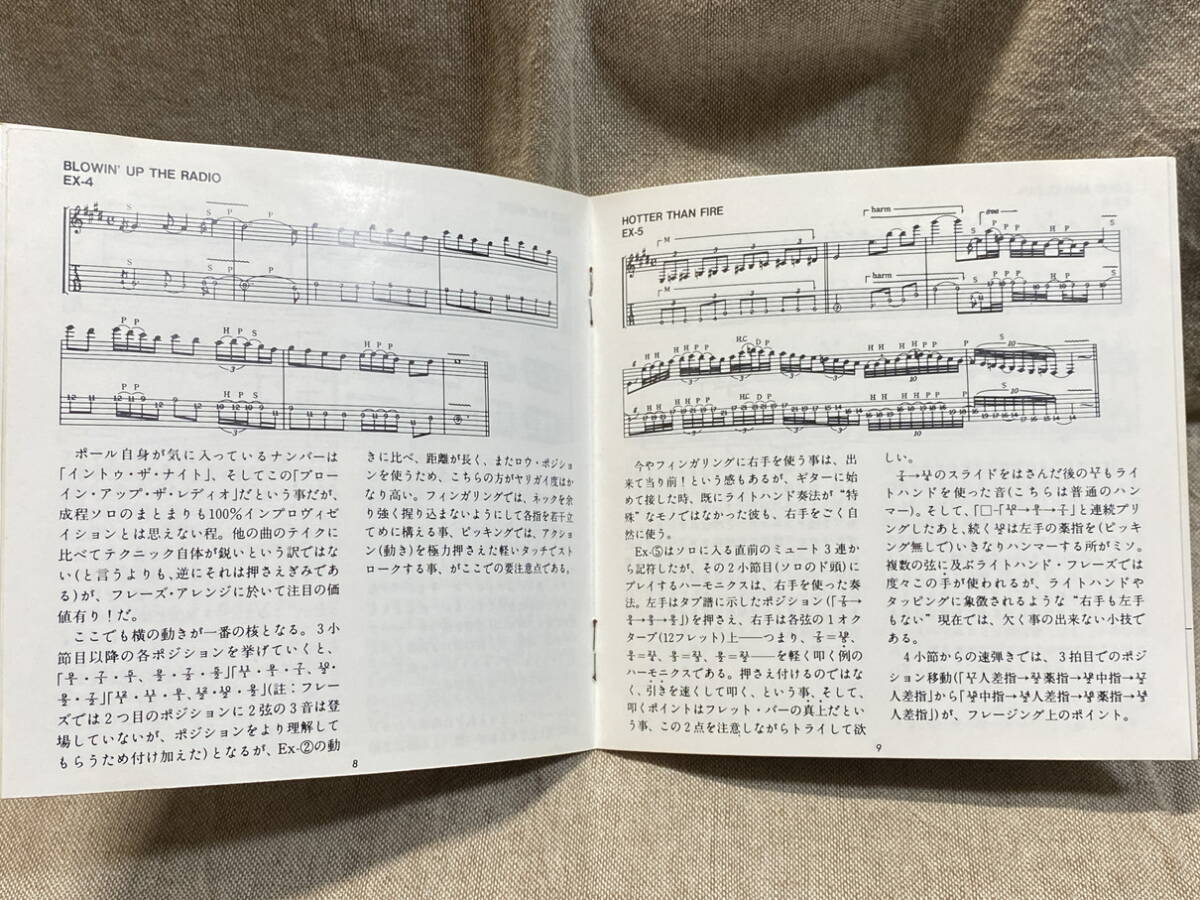 BLOWIN' UP THE RADIO
EX-4
ポール自身が気に入っているナンバーは
「イントゥ・ザ・ナイト」、そしてこの「ブロー
イン・アップ・ザ・レディオ」だという事だが、
成程ソロのまとまりも100%インプロヴィゼ
イションとは思えない程。他の曲のテイクに
比べてテクニック自体が鋭いという訳ではな
い(と言うよりも、逆にそれは押さえぎみであ
る)が、フレーズ・アレンジに於いて注目の価
値有り!だ。
ここでも横の動きが一番の核となる。3小
節目以降の各ポジションを挙げていくと、
(註:フレー
ズでは2つ目のポジションに2弦の3音は登
場していないが、ポジションをより理解して
もらうため付け加えた)となるが、Ex-②の動
きに比べ、距離が長く、またロウ・ポジショ
ンを使うため、こちらの方がヤリガイ度はか
なり高い。フィンガリングでは、ネックを余
り強く握り込まないようにして各指を若干立
てめに構える事、ピッキングでは、アクション
(動き)を極力押さえた軽いタッチでスト
ロークする事、がここでの要注意点である。
8
HOTTER THAN FIRE
EX-5
今やフィンガリングに右手を使う事は、出
来て当り前!という感もあるが、ギターに始
めて接した時、既にライトハンド奏法が“特
殊”なモノではなかった彼も、右手をごく自
然に使う。
Ex-⑤はソロに入る直前のミュート3連か
ら記符したが、その2小節目(ソロのド頭)に
プレイするハーモニクスは、右手を使った奏
法。左手はタブ譜に示したポジション(「
」)を押さえ、右手は各弦の1オク
ターブ(12フレット)上──つまり、
──を軽く叩く例の
ハーモニクスである。押さえ付けるのではな
く、引きを速くして叩く、という事、そして、
叩くポイントはフレット・バーの真上だとい
う事、この2点を注意しながらトライして欲
しい。
のスライドをはさんだ後の もライ
トハンドを使った音(こちらは普通のハン
マー)。そして、「 」と連続プリ
ングしたあと、続く は左手の薬指を(ピッキ
ング無しで)いきなりハンマーする所がミソ。
複数の弦に及ぶライトハンド・フレーズでは
度々この手が使われるが、ライトハンドや
タッピングに象徴されるような“右手も左手
もない”現在では、欠く事の出来ない小技で
ある。
4小節からの速弾きでは、3拍目でのポジ
ション移動(「 人差指→ 薬指→ 中指→
人差指」から「 中指→ 人差指→ 薬指→
人差指」)が、フレージング上のポイント。
9